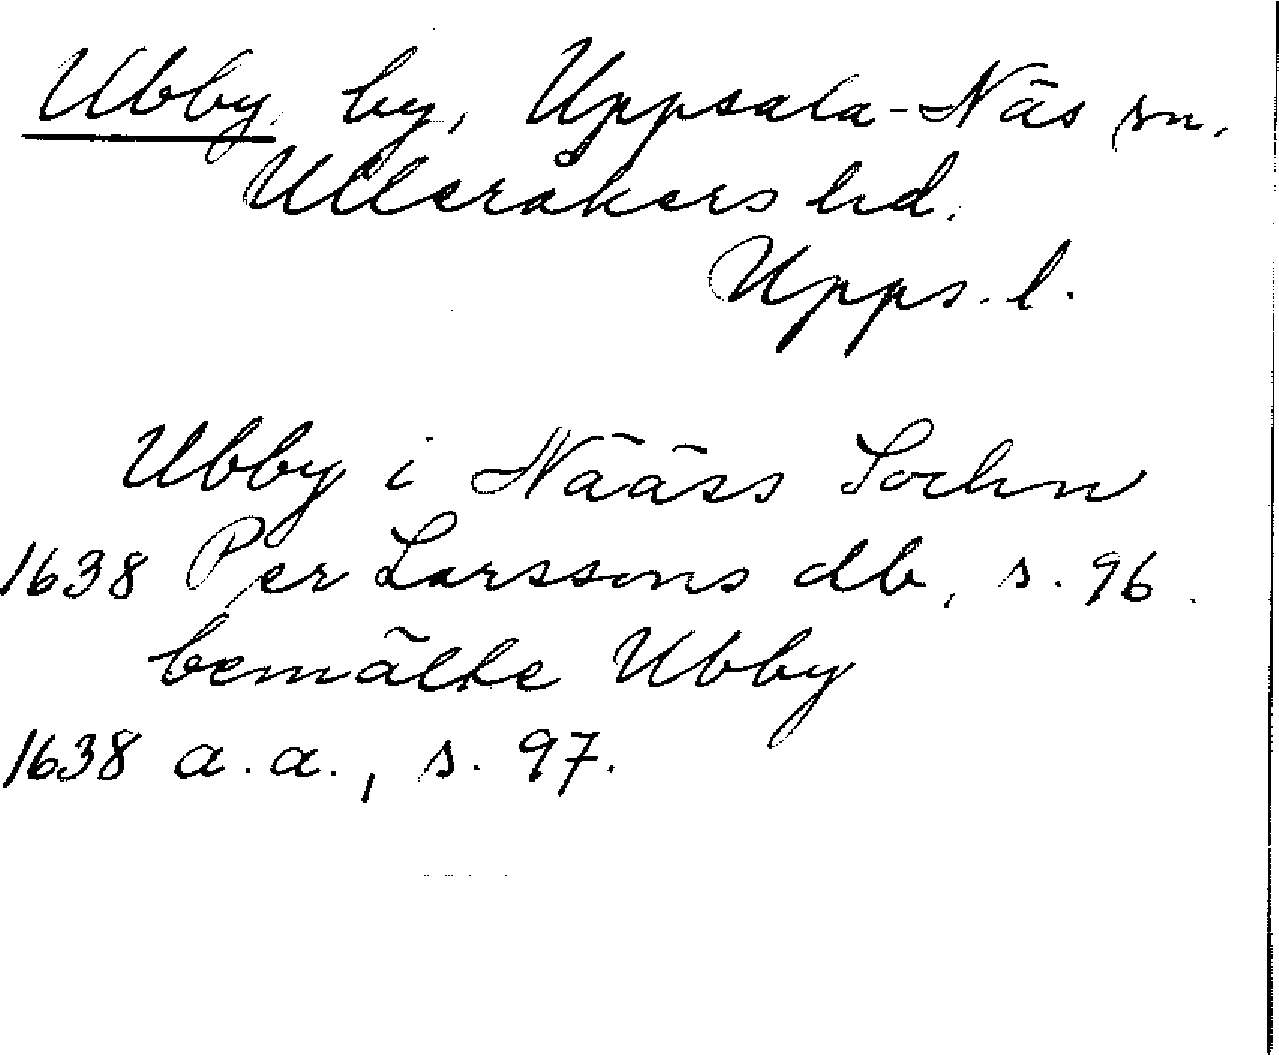 Ubby, by, Uppsala-Näs sn,
Ulleråkers hd.
Upps. l.
Ubby i Nääss Sochn
1638 Per Larssons db, s. 96.
bemälte Ubby
1638 a.a., s. 97.